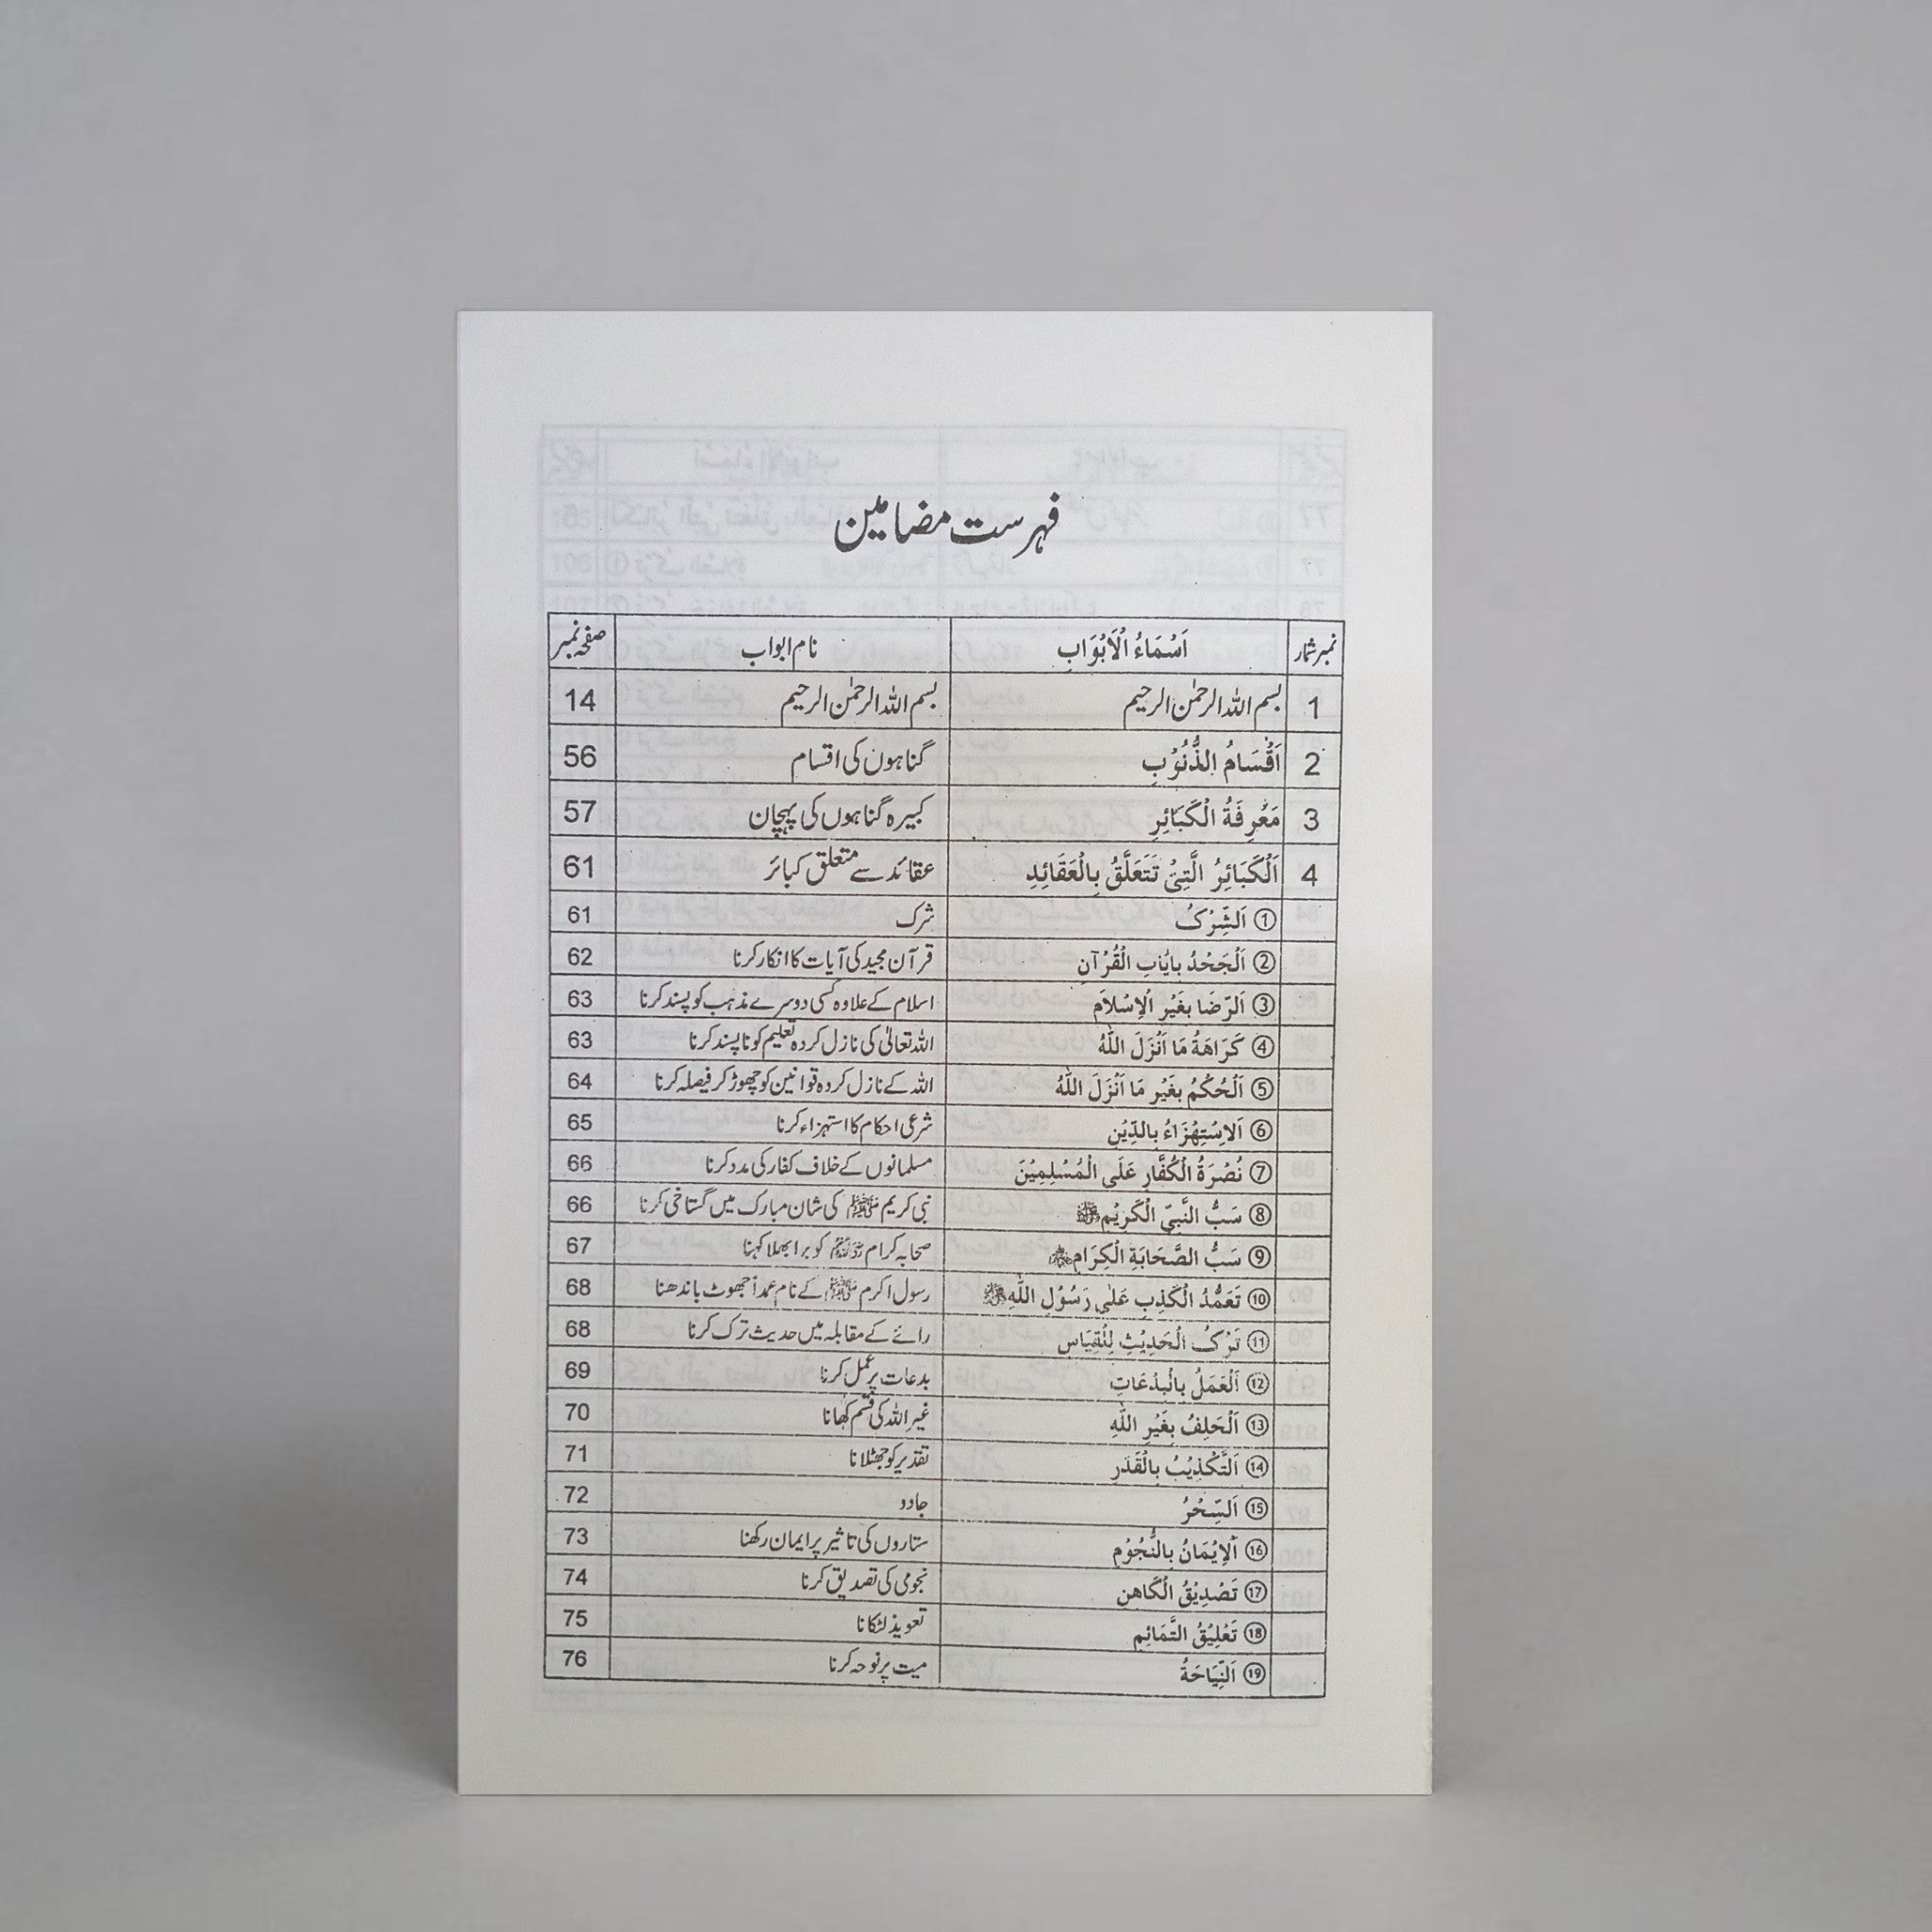 فہرست مضامین
نمبر شمار اَسْمَاءُ الْاَبْوَابِ نام ابواب صفحہ نمبر
1 بسم اللہ الرحمٰن الرحیم بسم اللہ الرحمٰن الرحیم 14
2 اَقْسَامُ الذُّنُوْبِ گناہوں کی اقسام 56
3 مَعْرِفَةُ الْكَبَائِرِ کبیرہ گناہوں کی پہچان 57
4 اَلْكَبَائِرُ الَّتِىْ تَتَعَلَّقُ بِالْعَقَائِدِ عقائد سے متعلق کبائر 61
① اَلشِّرْكُ شرک 61
② اَلْجَحْدُ بِاٰيٰاتِ الْقُرْآنِ قرآن مجید کی آیات کا انکار کرنا 62
③ اَلرِّضَا بِغَيْرِ الْاِسْلَامِ اسلام کے علاوہ کسی دوسرے مذہب کو پسند کرنا 63
④ كَرَاهَةُ مَا اَنْزَلَ اللّٰهُ اللہ تعالیٰ کی نازل کردہ تعلیم کو ناپسند کرنا 63
⑤ اَلْحُكْمُ بِغَيْرِ مَا اَنْزَلَ اللّٰهُ اللہ کے نازل کردہ قوانین کو چھوڑ کر فیصلہ کرنا 64
⑥ اَلْاِسْتِهْزَاءُ بِالدِّيْنِ شرعی احکام کا استہزاء کرنا 65
⑦ نُصْرَةُ الْكُفَّارِ عَلَى الْمُسْلِمِيْنَ مسلمانوں کے خلاف کفار کی مدد کرنا 66
⑧ سَبُّ النَّبِىِّ الْكَرِيْمِ ﷺ نبی کریم ﷺ کی شان مبارک میں گستاخی کرنا 66
⑨ سَبُّ الصَّحَابَةِ الْكِرَامِ صحابہ کرام کو برا بھلا کہنا 67
⑩ تَعَمُّدُ الْكَذِبِ عَلٰى رَسُوْلِ اللّٰهِ ﷺ رسول اکرم ﷺ کے نام عمداً جھوٹ باندھنا 68
⑪ تَرْكُ الْحَدِيْثِ لِلْقِيَاسِ رائے کے مقابلہ میں حدیث ترک کرنا 68
⑫ اَلْعَمَلُ بِالْبِدْعَاتِ بدعات پر عمل کرنا 69
⑬ اَلْحَلِفُ بِغَيْرِ اللّٰهِ غیر اللہ کی قسم کھانا 70
⑭ اَلتَّكْذِيْبُ بِالْقَدَرِ تقدیر کو جھٹلانا 71
⑮ اَلسِّحْرُ جادو 72
⑯ اَلْاِيْمَانُ بِالنُّجُوْمِ ستاروں کی تاثیر پر ایمان رکھنا 73
⑰ تَصْدِيْقُ الْكَاهِنِ نجومی کی تصدیق کرنا 74
⑱ تَعْلِيْقُ التَّمَائِمِ تعویذ لٹکانا 75
⑲ اَلنِّيَاحَةُ میت پر نوحہ کرنا 76